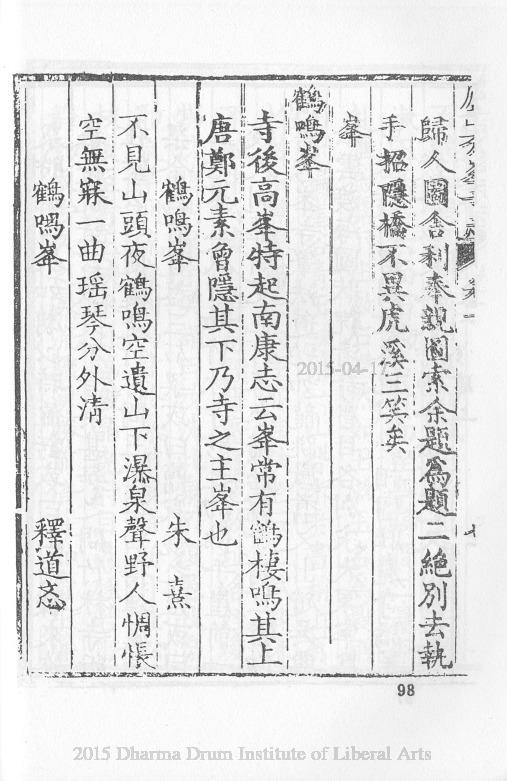 歸人圖舍利奉親圖索余題爲題二絕別去執
手招隱橋不異虎溪三笑矣
峯
鶴鳴峯
寺後高峯特起南康志云峯常有鶴棲鳴其上
唐鄭元素曾隱其下乃寺之主峯也
鶴鳴峯 朱熹
不見山頭夜鶴鳴空遺山下瀑泉聲野人惆悵
空無寐一曲瑶琴分外清
鶴鳴峯 釋道忞
2015-04-17
98
2015 Dharma Drum Institute of Liberal Arts